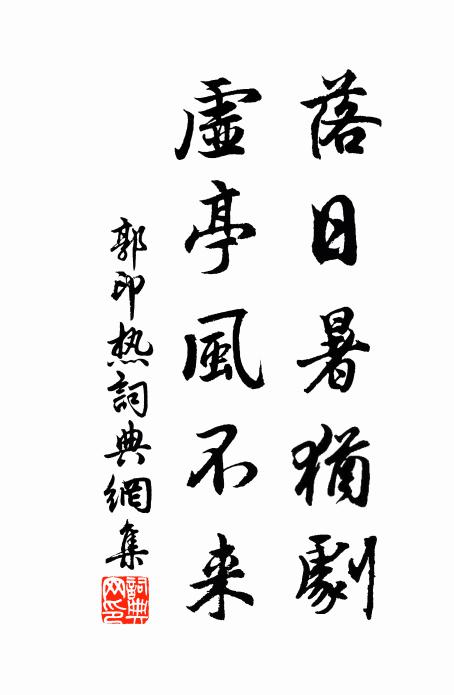 落日暑猶劇
虛亭風不来
郭印热詞典網集
詞典网印